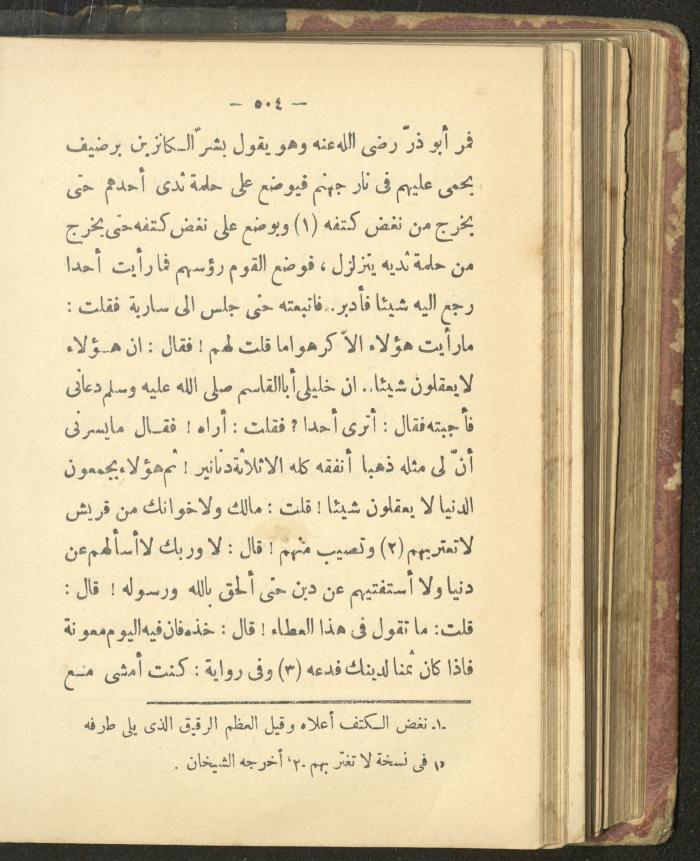 — ٥٠٤ —
فمر أبو ذرّ رضى الله عنه وهو يقول بشرّ الـكانزين برضيف
يحمى عليهم فى نار جهنم فيوضع على حلمة ثدى أحدهم حتى
يخرج من نغض كتفه (١) ويوضع على نغض كتفه حتى يخرج
من حلمة ثديه يتزلزل ، فوضع القوم رؤسهم فما رأيت أحدا
رجع اليه شيئا فأدبر.. فاتبعته حتى جلس الى سارية فقلت :
ما رأيت هؤلاء الاّ كرهوا ما قلت لهم ! فقال : ان هـؤلاء
لا يعقلون شيئا.. ان خليلى أبا القاسم صلى الله عليه وسلم دعانى
فأجبته فقال : أترى أحدا ? فقلت : أراه ! فقـال مايسرنى
أنّ لى مثله ذهبا أنفقه كله الا ثلاثة دنانير ! ثم هؤلاء يجمعون
الدنيا لا يعقلون شيئا ! قلت : مالك ولاخوانك من قريش
لا تعتريهم (٢) وتصيب منهم ! قال : لا وربك لا أسألهم عن
دنيا ولا أستفتيهم عن دين حتى ألحق بالله ورسوله ! قال :
قلت: ما تقول فى هذا العطاء ! قال : خذه فان فيه اليوم معونة
فاذا كان ثمنا لدينك فدعه (٣) وفى رواية : كنت أمشى مـع
ـ١ـ نغض الـكتف أعلاه وقيل العظم الرقيق الذى يلى طرفه
فى نسخة لا تغتر بهم ـ٢، أخرجه الشيخان .